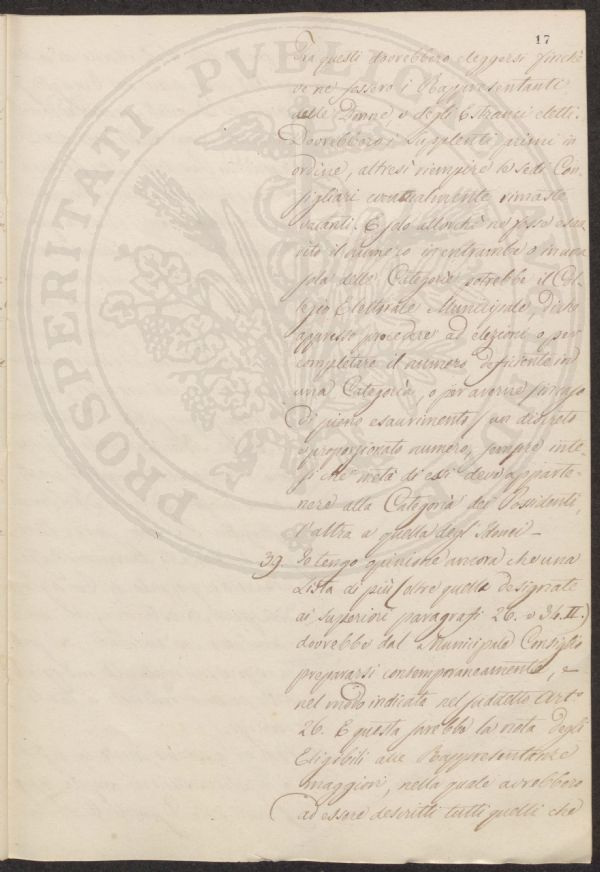 17
Tra questi dovrebbero eleggersi finchè
ve ne fossero i Rappresentanti
delle Donne o degli Estranei eletti.
Dovrebbero i Supplenti primi in
ordine, altresì riempire le sedi Con-
sigliari eventualmente rimaste
vacanti. E solo allorchè ne fosse esau-
rito il numero in entrambe o in una
sola delle Categorie potrebbe il Col-
legio Elettorale Municipale,
appresso procedere ad elezioni o per
completare il numero deficiente in
una Categoria, o per averne (in caso
di pieno esaurimento) un discreto
e proporzionato numero, sempre inte-
so che metà di essi deve apparte-
nere alla Categoria dei Possidenti,
l'altra a quella degl'Idonei –
39 Io tengo opinione ancora che una
Lista di più (oltre quelle designate
ai superiori paragrafi 26. e 34. II.)
dovrebbe dal Municipale Consiglio
prepararsi contemporaneamente, e
nel modo indicato nel suddetto Art.o
26. E questa sarebbe la nota degli
Eligibili alle Rappresentanze
maggiori, nella quale avrebbero
ad essere descritti tutti quelli che
PROSPERITATI PVBLICAE